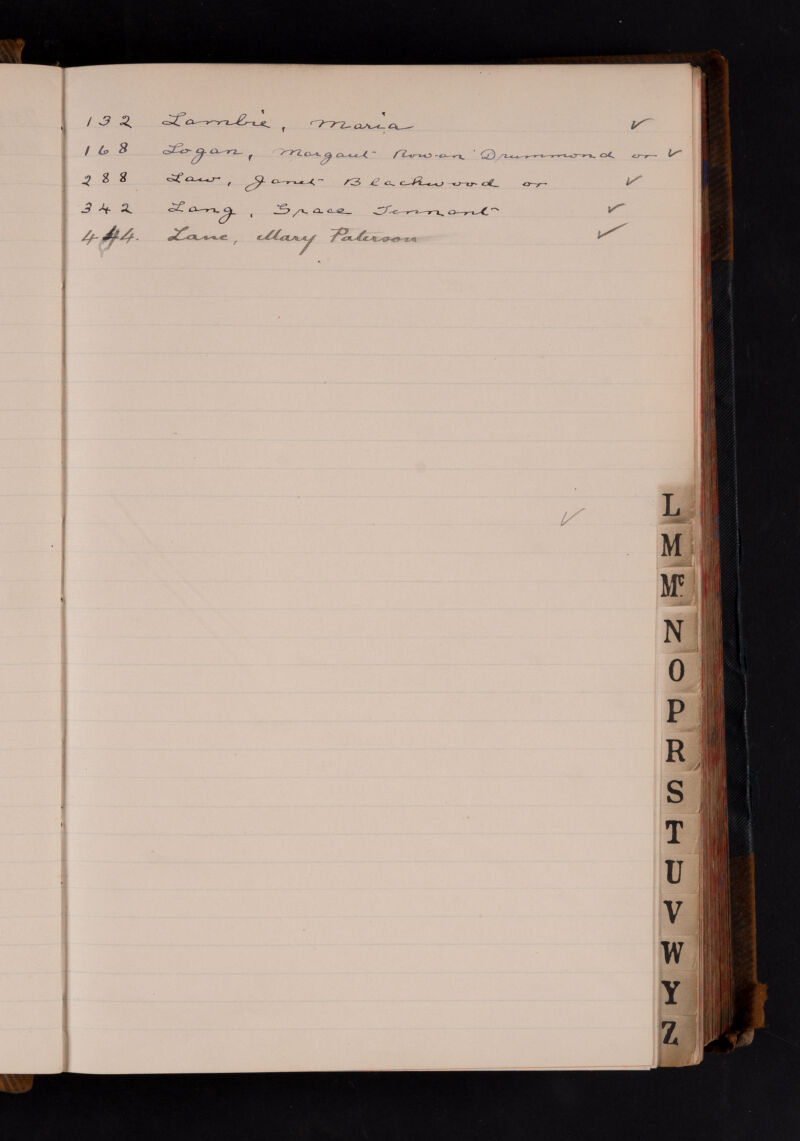 132 Lambie, Maria ✓
168 Logan, Margaret Rowan Drummond or ✓
288 Law, Janet Blackwood or ✓
342 Lang, Grace Tennant ✓
444. Lane, Mary Paterson ✓
✓
L
M
Mc
N
O
P
R
S
T
U
V
W
Y
Z